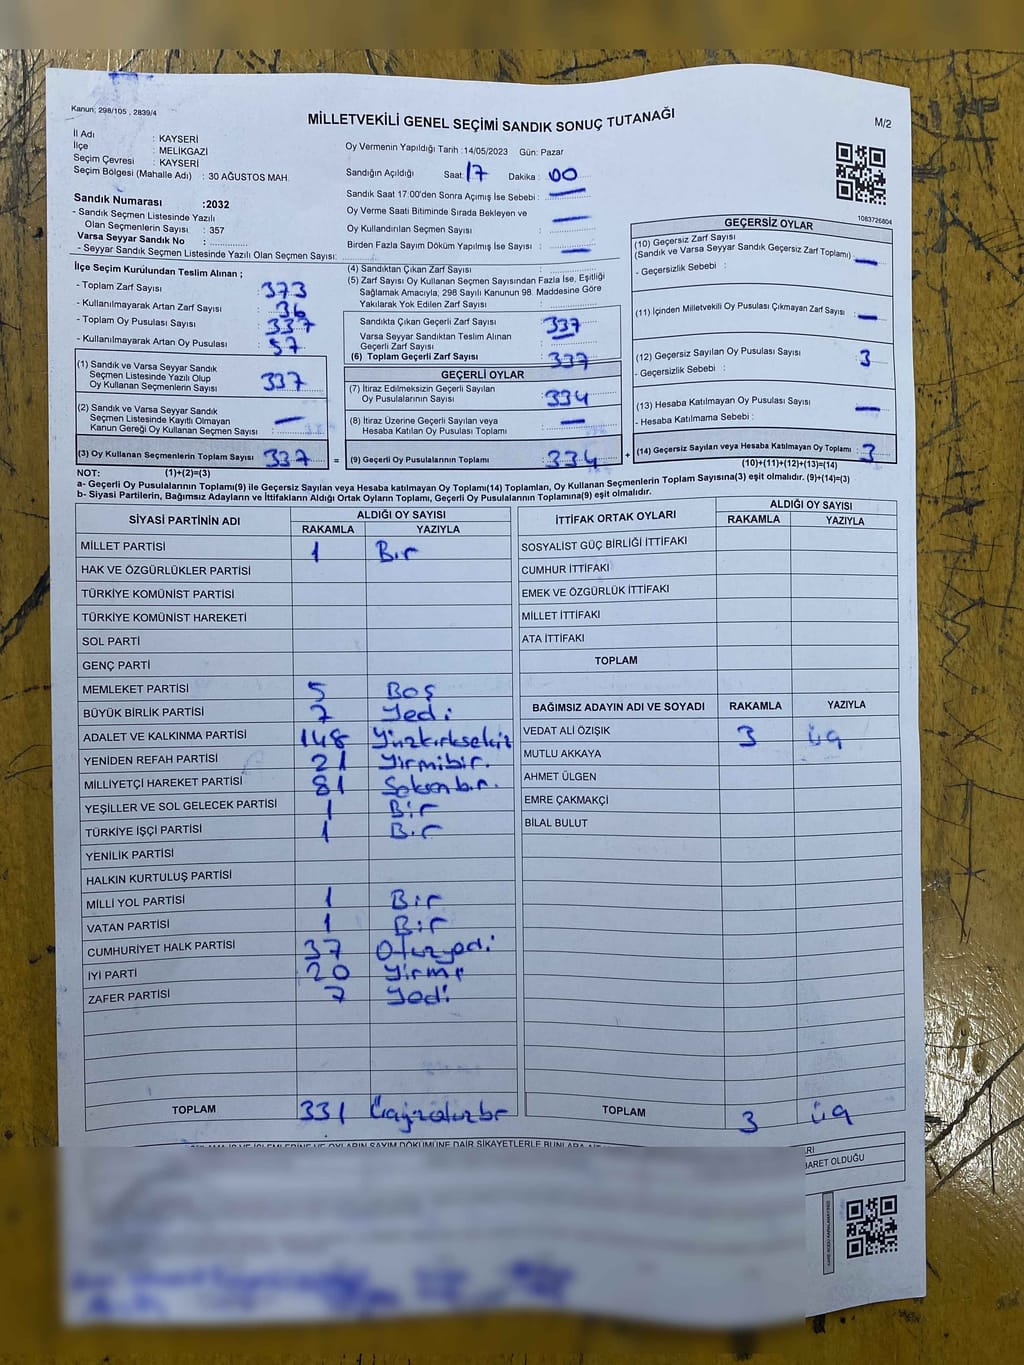 Kanun: 298/105 , 2839/4
MİLLETVEKİLİ GENEL SEÇİMİ SANDIK SONUÇ TUTANAĞI
M/2
İl Adı : KAYSERİ
İlçe : MELİKGAZİ
Seçim Çevresi : KAYSERİ
Seçim Bölgesi (Mahalle Adı) : 30 AĞUSTOS MAH.
Sandık Numarası :2032
- Sandık Seçmen Listesinde Yazılı
Olan Seçmenlerin Sayısı : 357
Varsa Seyyar Sandık No :
- Seyyar Sandık Seçmen Listesinde Yazılı Olan Seçmen Sayısı:
Oy Vermenin Yapıldığı Tarih :14/05/2023 Gün: Pazar
Sandığın Açıldığı Saat: 17 Dakika : 00
Sandık Saat 17:00'den Sonra Açımış İse Sebebi : —
Oy Verme Saati Bitiminde Sırada Bekleyen ve
Oy Kullandırılan Seçmen Sayısı : —
Birden Fazla Sayım Döküm Yapılmış İse Sayısı : —
1083726804
İlçe Seçim Kurulundan Teslim Alınan ;
- Toplam Zarf Sayısı : 373
- Kullanılmayarak Artan Zarf Sayısı : 36
- Toplam Oy Pusulası Sayısı : 337
- Kullanılmayarak Artan Oy Pusulası : 57
(1) Sandık ve Varsa Seyyar Sandık
Seçmen Listesinde Yazılı Olup
Oy Kullanan Seçmenlerin Sayısı : 337
(2) Sandık ve Varsa Seyyar Sandık
Seçmen Listesinde Kayıtlı Olmayan
Kanun Gereği Oy Kullanan Seçmen Sayısı : —
(3) Oy Kullanan Seçmenlerin Toplam Sayısı : 337
(1)+(2)=(3)
(4) Sandıktan Çıkan Zarf Sayısı :
(5) Zarf Sayısı Oy Kullanan Seçmen Sayısından Fazla İse, Eşitliği
Sağlamak Amacıyla, 298 Sayılı Kanunun 98. Maddesine Göre
Yakılarak Yok Edilen Zarf Sayısı :
Sandıkta Çıkan Geçerli Zarf Sayısı : 337
Varsa Seyyar Sandıktan Teslim Alınan
Geçerli Zarf Sayısı : —
(6) Toplam Geçerli Zarf Sayısı : 337
GEÇERLİ OYLAR
(7) İtiraz Edilmeksizin Geçerli Sayılan
Oy Pusulalarının Sayısı : 334
(8) İtiraz Üzerine Geçerli Sayılan veya
Hesaba Katılan Oy Pusulası Toplamı : —
= (9) Geçerli Oy Pusulalarının Toplamı : 334 +
GEÇERSİZ OYLAR
(10) Geçersiz Zarf Sayısı
(Sandık ve Varsa Seyyar Sandık Geçersiz Zarf Toplamı) : —
- Geçersizlik Sebebi :
(11) İçinden Milletvekili Oy Pusulası Çıkmayan Zarf Sayısı : —
(12) Geçersiz Sayılan Oy Pusulası Sayısı : 3
- Geçersizlik Sebebi :
(13) Hesaba Katılmayan Oy Pusulası Sayısı : —
- Hesaba Katılmama Sebebi :
(14) Geçersiz Sayılan veya Hesaba Katılmayan Oy Toplamı : 3
(10)+(11)+(12)+(13)=(14)
NOT:
a- Geçerli Oy Pusulalarının Toplamı(9) ile Geçersiz Sayılan veya Hesaba katılmayan Oy Toplamı(14) Toplamları, Oy Kullanan Seçmenlerin Toplam Sayısına(3) eşit olmalıdır. (9)+(14)=(3)
b- Siyasi Partilerin, Bağımsız Adayların ve İttifakların Aldığı Ortak Oyların Toplamı, Geçerli Oy Pusulalarının Toplamına(9) eşit olmalıdır.
SİYASİ PARTİNİN ADI ALDIĞI OY SAYISI
RAKAMLA YAZIYLA
MİLLET PARTİSİ 1 Bir
HAK VE ÖZGÜRLÜKLER PARTİSİ
TÜRKİYE KOMÜNİST PARTİSİ
TÜRKİYE KOMÜNİST HAREKETİ
SOL PARTİ
GENÇ PARTİ
MEMLEKET PARTİSİ 5 Boş
BÜYÜK BİRLİK PARTİSİ 7 Yedi
ADALET VE KALKINMA PARTİSİ 148 Yüzkırksekiz
YENİDEN REFAH PARTİSİ 21 Yirmibir.
MİLLİYETÇİ HAREKET PARTİSİ 81 Seksenbir.
YEŞİLLER VE SOL GELECEK PARTİSİ 1 Bir
TÜRKİYE İŞÇİ PARTİSİ 1 Bir
YENİLİK PARTİSİ
HALKIN KURTULUŞ PARTİSİ
MİLLİ YOL PARTİSİ 1 Bir
VATAN PARTİSİ 1 Bir
CUMHURİYET HALK PARTİSİ 37 Otuzyedi
İYİ PARTİ 20 Yirmi
ZAFER PARTİSİ 7 Yedi
TOPLAM 331 Üçyüzotuzbir
İTTİFAK ORTAK OYLARI ALDIĞI OY SAYISI
RAKAMLA YAZIYLA
SOSYALİST GÜÇ BİRLİĞİ İTTİFAKI
CUMHUR İTTİFAKI
EMEK VE ÖZGÜRLÜK İTTİFAKI
MİLLET İTTİFAKI
ATA İTTİFAKI
TOPLAM
BAĞIMSIZ ADAYIN ADI VE SOYADI RAKAMLA YAZIYLA
VEDAT ALİ ÖZIŞIK 3 üç
MUTLU AKKAYA
AHMET ÜLGEN
EMRE ÇAKMAKÇİ
BİLAL BULUT
TOPLAM 3 üç
DÖKÜMÜNE DAİR ŞİKAYETLERLE BUNLARA
BARET OLDUĞU